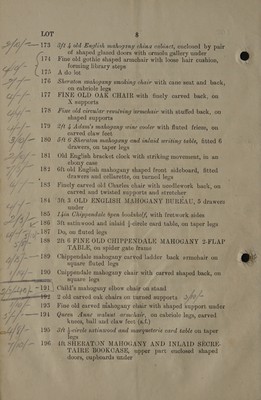 LOT 8
173 3ft ½ old English mahogany china cabinet, enclosed by pair
of shaped glazed doors with ormolu gallery under
174 Fine old gothic shaped armchair with loose hair cushion,
forming library steps
175 A do lot
176 Sheraton mahogany smoking chair with cane seat and back,
on cabriole legs
177 FINE OLD OAK CHAIR with finely carved back, on
X supports
178 Fine old circular revolving armchair with stuffed back, on
shaped supports
179 2ft Adam's mahogany wine cooler with fluted frieze, on
carved claw feet
180 5ft 6 Sheraton mahogany and inlaid writing table, fitted 6
drawers, on taper legs
181 Old English bracket clock with striking movement, in an
ebony case
182 6ft old English mahogany shaped front sideboard, fitted
drawers and cellarette, on turned legs
183 Finely carved old Charles chair with needlework back, on
carved and twisted supports and stretcher
184 3ft 3 OLD ENGLISH MAHOGANY BUREAU, 5 drawers
under
185 14in Chippendale open bookshelf, with fretwork sides
186 5ft satinwood and inlaid ½-circle card table, on taper legs
187 Do, on fluted legs
188 2ft 6 FINE OLD CHIPPENDALE MAHOGANY 2-FLAP
TABLE, on spider gate frame
189 Chippendale mahogany carved ladder back armchair on
square fluted legs
190 Chippendale mahogany chair with carved shaped back, on
square legs
191 Child's mahogany elbow chair on stand
192 2 old carved oak chairs on turned supports
193 Fine old carved mahogany chair with shaped support under
194 Queen Anne walnut armchair, on cabriole legs, carved
knees, ball and claw feet (a.f.)
195 3ft ½-circle satinwood and marqueterie card table on taper
legs
196 4ft SHERATON MAHOGANY AND INLAID SECRE-
TAIRE BOOKCASE, upper part enclosed shaped
doors, cupboards under